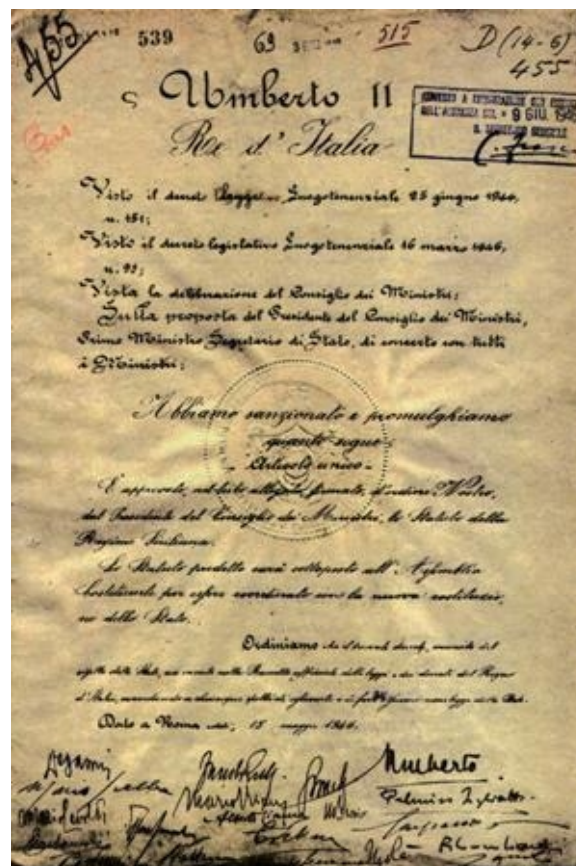 455
539
69
515
D (14-6)
455
Umberto II
Re d'Italia
9 GIU. 1946
Visto il decreto Legge Luogotenenziale 25 giugno 1944,
n. 151;
Visto il decreto legislativo Luogotenenziale 16 marzo 1946,
n. 98;
Vista la deliberazione del Consiglio dei Ministri;
Sulla proposta del Presidente del Consiglio dei Ministri,
Primo Ministro Segretario di Stato, di concerto con tutti
i Ministri;
Abbiamo sanzionato e promulghiamo
quanto segue:
- Articolo unico -
È approvato, nel testo allegato, firmato, d'ordine Nostro,
dal Presidente del Consiglio dei Ministri, lo Statuto della
Regione Siciliana.
Lo Statuto predetto sarà sottoposto all'Assemblea
Costituente per essere coordinato con la nuova costituzio-
ne dello Stato.
Ordiniamo che il presente decreto, munito del
sigillo dello Stato, sia inserto nella Raccolta ufficiale delle leggi e dei decreti del Regno
d'Italia, mandando a chiunque spetti di osservarlo e di farlo osservare come legge dello Stato.
Dato a Roma addì, 15 maggio 1946.
Umberto